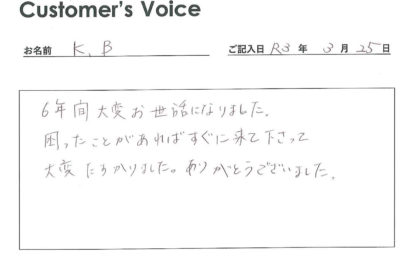 Customer's Voice
お名前 K. B ご記入日 R3 年 3 月 25 日
6年間大変お世話になりました。
困ったことがあればすぐに来て下さって
大変たすかりました。ありがとうございました。